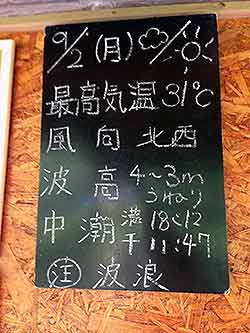 9/2(月)☁/☀
最高気温31℃
風向 北西
波高 4~3m
うねり
中潮 満18:12
干11:47
㊟波浪